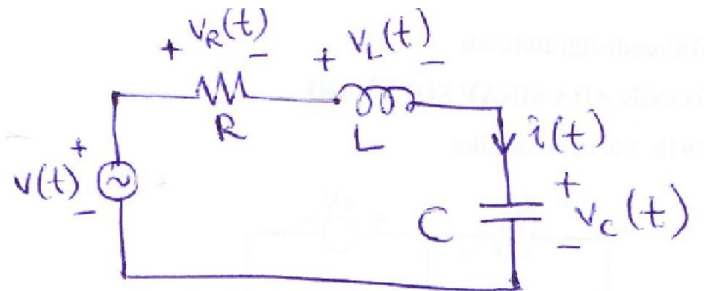 + v_R(t) -
+ v_L(t) -
R
L
i(t)
v(t) + ~ -
C
+ v_c(t) -